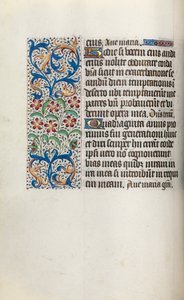 eius. Aue maria.
Hodie si vocem eius audi
eritis nolite obdurare corda
vestra sicut in exacerbatione se
cundum diem temptationis in
deserto vbi temptauerunt me
patres vestri probauerunt et vi
derunt opera mea. Dominus
Quadraginta annis pro
ximus fui generationi huic
et dixi semper hii errant corde
ipsi vero non cognouerunt
vias meas quibus iuraui in
ira mea si introibunt in requi
em meam. Aue maria gra